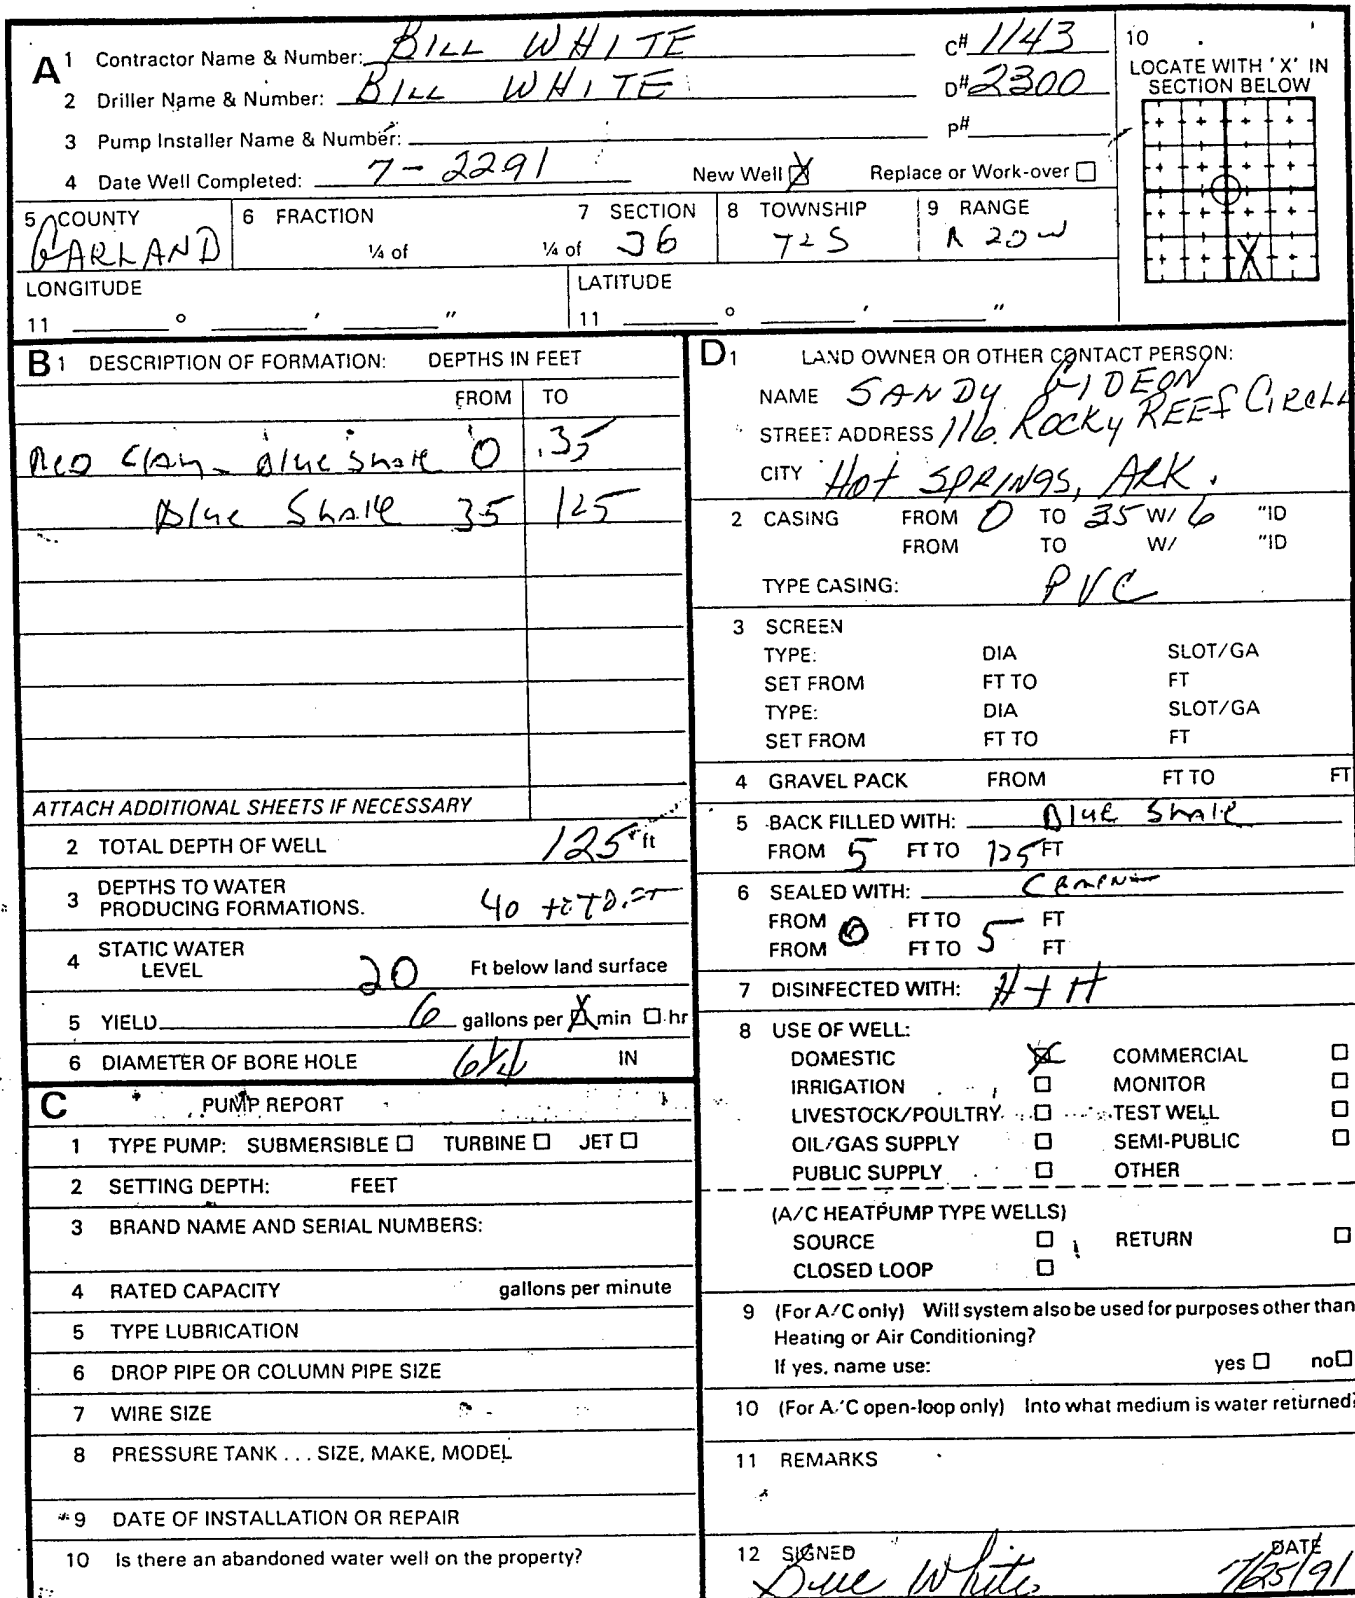 A 1 Contractor Name & Number: BILL WHITE C# 1143
2 Driller Name & Number: BILL WHITE D# 2300
3 Pump Installer Name & Number: P#
4 Date Well Completed: 7-2291 New Well X Replace or Work-over ☐
10
LOCATE WITH 'X' IN
SECTION BELOW
X
5 COUNTY 6 FRACTION 7 SECTION 8 TOWNSHIP 9 RANGE
GARLAND ¼ of ¼ of 36 T2S R 20W
LONGITUDE LATITUDE
11 ° ' " 11 ° ' "
B 1 DESCRIPTION OF FORMATION: DEPTHS IN FEET
FROM TO
Red Clay - Blue Shale 0 35
Blue Shale 35 125
ATTACH ADDITIONAL SHEETS IF NECESSARY
2 TOTAL DEPTH OF WELL 125 ft
3 DEPTHS TO WATER
PRODUCING FORMATIONS. 40
4 STATIC WATER
LEVEL 20 Ft below land surface
5 YIELD 6 gallons per X min ☐ hr
6 DIAMETER OF BORE HOLE 6¼ IN
C PUMP REPORT
1 TYPE PUMP: SUBMERSIBLE ☐ TURBINE ☐ JET ☐
2 SETTING DEPTH: FEET
3 BRAND NAME AND SERIAL NUMBERS:
4 RATED CAPACITY gallons per minute
5 TYPE LUBRICATION
6 DROP PIPE OR COLUMN PIPE SIZE
7 WIRE SIZE
8 PRESSURE TANK . . . SIZE, MAKE, MODEL
9 DATE OF INSTALLATION OR REPAIR
10 Is there an abandoned water well on the property?
D 1 LAND OWNER OR OTHER CONTACT PERSON:
NAME SANDY GIDEON
STREET ADDRESS 116 ROCKY REEF CIRCLE
CITY HOT SPRINGS, ARK.
2 CASING FROM 0 TO 35 W/ 6 "ID
FROM TO W/ "ID
TYPE CASING: PVC
3 SCREEN
TYPE: DIA SLOT/GA
SET FROM FT TO FT
TYPE: DIA SLOT/GA
SET FROM FT TO FT
4 GRAVEL PACK FROM FT TO FT
5 BACK FILLED WITH: Blue Shale
FROM 5 FT TO 125 FT
6 SEALED WITH: Cement
FROM 0 FT TO 5 FT
FROM FT TO FT
7 DISINFECTED WITH: HTH
8 USE OF WELL:
DOMESTIC X COMMERCIAL ☐
IRRIGATION ☐ MONITOR ☐
LIVESTOCK/POULTRY ☐ TEST WELL ☐
OIL/GAS SUPPLY ☐ SEMI-PUBLIC ☐
PUBLIC SUPPLY ☐ OTHER
(A/C HEATPUMP TYPE WELLS)
SOURCE ☐ RETURN ☐
CLOSED LOOP ☐
9 (For A/C only) Will system also be used for purposes other than
Heating or Air Conditioning?
If yes, name use: yes ☐ no ☐
10 (For A/C open-loop only) Into what medium is water returned?
11 REMARKS
12 SIGNED DATE
White 7/25/91